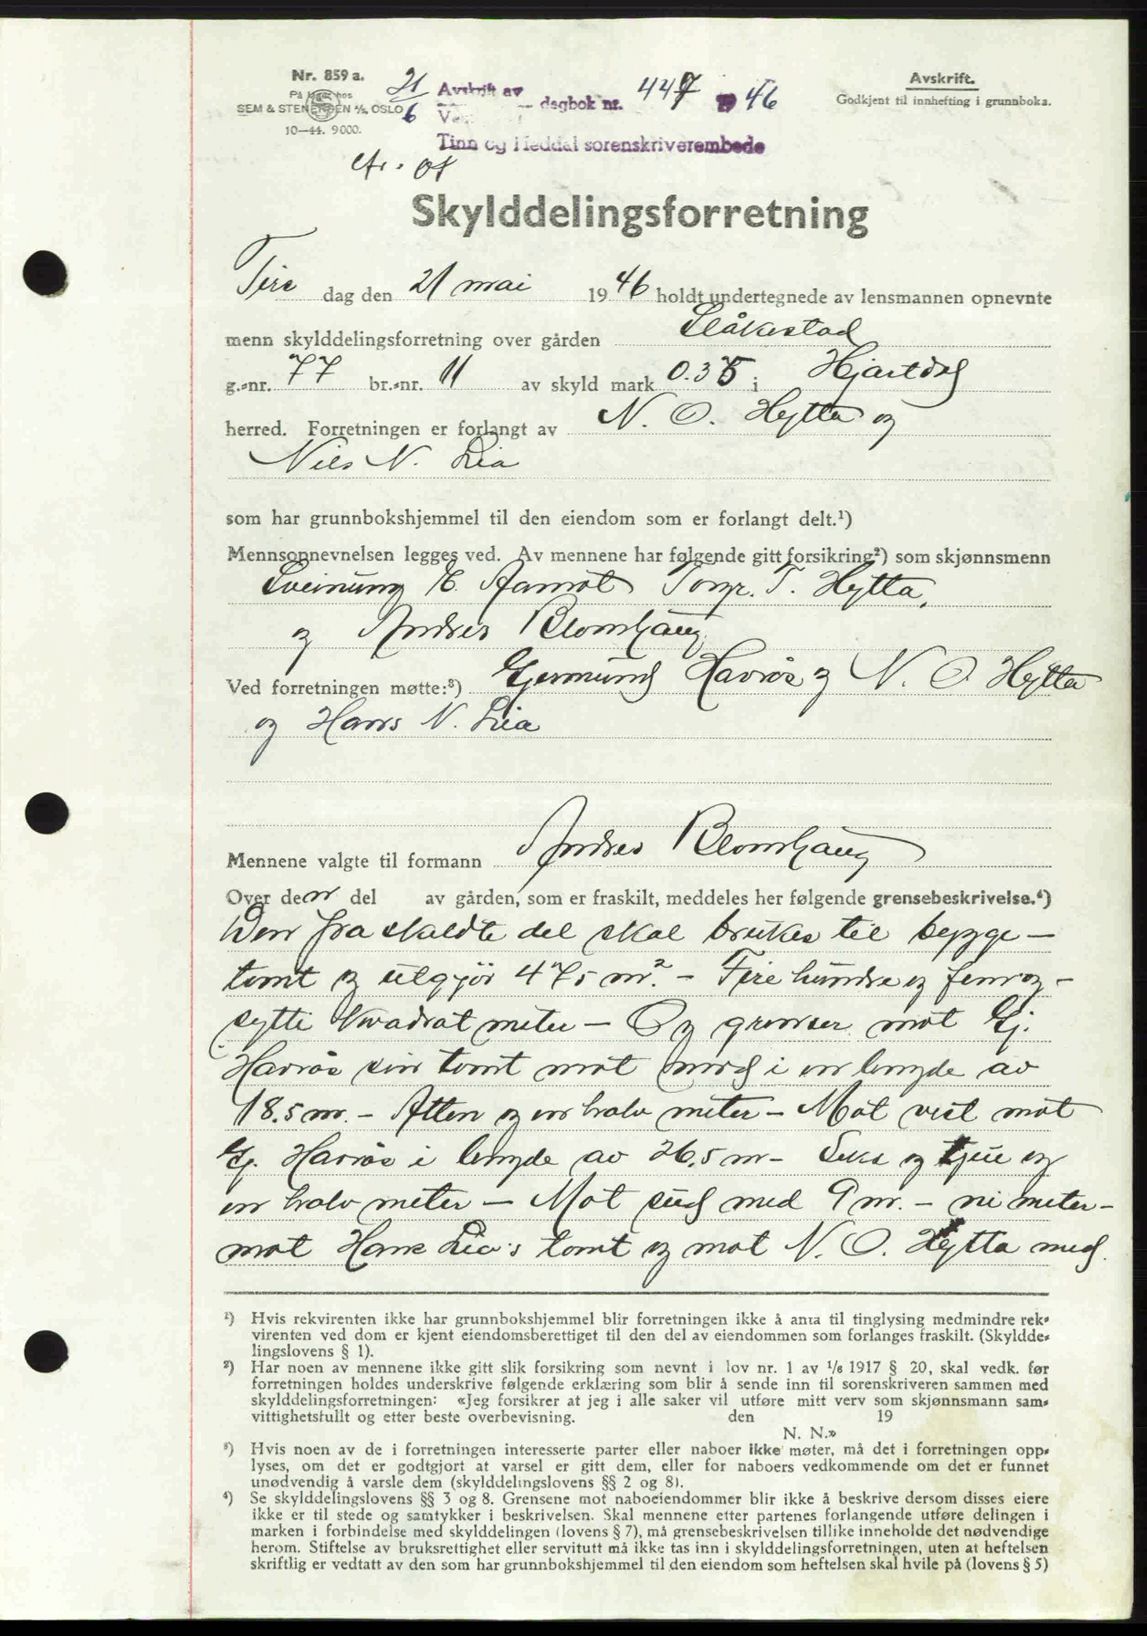 Nr. 859 a.
På lager hos
SEM & STENERSEN A/S, OSLO
10—44. 9000.
21/6
Avskrift av
dagbok nr. 447 1946
Tinn og Heddal sorenskriverembede
Avskrift.
Godkjent til innhefting i grunnboka.
Skylddelingsforretning
Tirs dag den 21 mai 1946 holdt undertegnede av lensmannen opnevnte
menn skylddelingsforretning over gården Slåkestad
g.-nr. 77 br.-nr. 11 av skyld mark 0.35 i Hjartdal
herred. Forretningen er forlangt av N. O. Hytta og
Nils N. Lia
som har grunnbokshjemmel til den eiendom som er forlangt delt.¹)
Mennsopnevnelsen legges ved. Av mennene har følgende gitt forsikring²) som skjønnsmenn
Sveinung E. Aamot T. Hytta,
og Andres Blomhaug
Ved forretningen møtte:³) Gjermund Havrås og N. O Hytta
og Hans N. Lia
Mennene valgte til formann Andres Blomhaug
Over den del av gården, som er fraskilt, meddeles her følgende grensebeskrivelse.⁴)
Den fra skildte del skal brukes til bygge-
tomt og utgjør 475 m². - Fire hundre og fem og-
sytti kvadrat meter - Og grenser mot Gj.
Havrås sin tomt mot nord i en lengde av
18.5 m. - Atten og en halv meter - Mot vest mot
Gj. Havrås i lengde av 26,5 m - Seks og tjue og
en halv meter - Mot sud med 9 m. - ni meter-
mot Hans Lia's tomt og mot N. O. Hytta med
¹) Hvis rekvirenten ikke har grunnbokshjemmel blir forretningen ikke å anta til tinglysing medmindre rek-
virenten ved dom er kjent eiendomsberettiget til den del av eiendommen som forlanges fraskilt. (Skyldde-
lingslovens § 1).
²) Har noen av mennene ikke gitt slik forsikring som nevnt i lov nr. 1 av 1/6 1917 § 20, skal vedk. før
forretningen holdes underskrive følgende erklæring som blir å sende inn til sorenskriveren sammen med
skylddelingsforretningen: «Jeg forsikrer at jeg i alle saker vil utføre mitt verv som skjønnsmann sam-
vittighetsfullt og etter beste overbevisning. den 19
N. N.»
³) Hvis noen av de i forretningen interesserte parter eller naboer ikke møter, må det i forretningen opp-
lyses, om det er godtgjort at varsel er gitt dem, eller for naboers vedkommende om det er funnet
unødvendig å varsle dem (skylddelingslovens §§ 2 og 8).
⁴) Se skylddelingslovens §§ 3 og 8. Grensene mot naboeiendommer blir ikke å beskrive dersom disses eiere
ikke er til stede og samtykker i beskrivelsen. Skal mennene etter partenes forlangende utføre delingen i
marken i forbindelse med skylddelingen (lovens § 7), må grensebeskrivelsen tillike inneholde det nødvendige
herom. Stiftelse av bruksrettighet eller servitutt må ikke tas inn i skylddelingsforretningen, uten at heftelsen
skriftlig er vedtatt av den som har grunnbokshjemmel til den eiendom som heftelsen skal hvile på (lovens § 5)